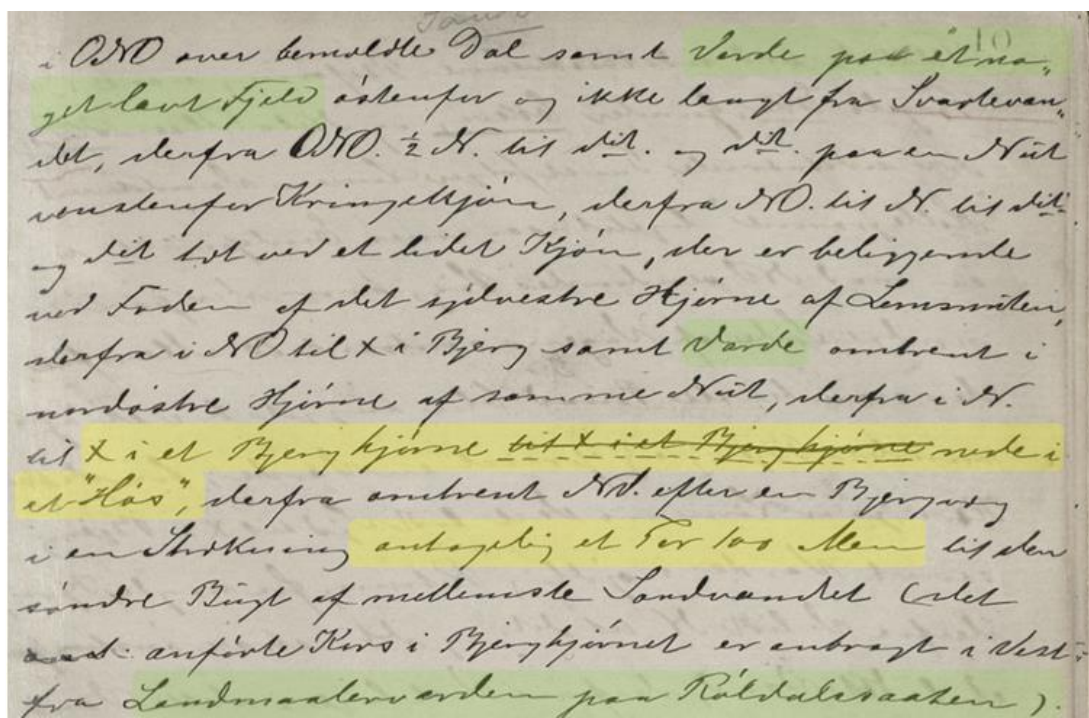 10
i ONO over bemeldte Dal samt Varde paa et no„
get lavt Fjeld østenfor og ikke langt fra Svartevan„
det, derfra ONO. ½ N. til dit. og dit. paa en Nut
venstenfor Kringletjørn, derfra NO. til N. til dit.
og dit tæt ved et lidet Kjørn, der er beliggende
ved Foden af det sydvestre Hjørne af Lemsnuten,
derfra i NO til X i Bjerg samt Varde omtrent i
nordøstre Hjørne af samme Nut, derfra i N.
til X i et Bjerghjørne til X i et Bjerghjørne nede i
et "Høs", derfra omtrent NV. efter en Bjergvæg
i en Strækning antagelig et Par 100 Meter til den
søndre Bugt af mellemste Sandvandet (det
anførte Kors i Bjerghjørnet er anbragt i Vest
fra Landmaalervarden paa Røldalssaaten).